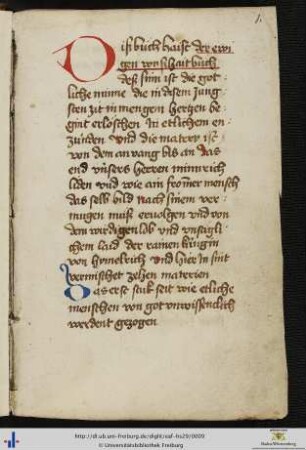 1.
Diß buch haist der ewi-
gen wyshait buch
deß sinn ist die got
liche minne die in disem Jung
sten zit in mengen hertzen be
gint erloschen In etlichem en
zúnden Vnd die matery ist
von dem anvang bis an das
end vnsers herren minnrich
liden vnd wie ain fromer mensch
das selb bild nach sinem ver
mugen muß ervolgen vnd von
dem wirdigen lob vnd vnsägli
chem laid der rainen kúngin
von hymelrich vnd hier in sint
vermischet zehen materien
Das erst stuk seit wie etliche
menschen von got vnwissenclich
werdent gezogen
http://dl.ub.uni-freiburg.de/diglit/eaf-hs29/0009
© Universitätsbibliothek Freiburg
Baden-Württemberg